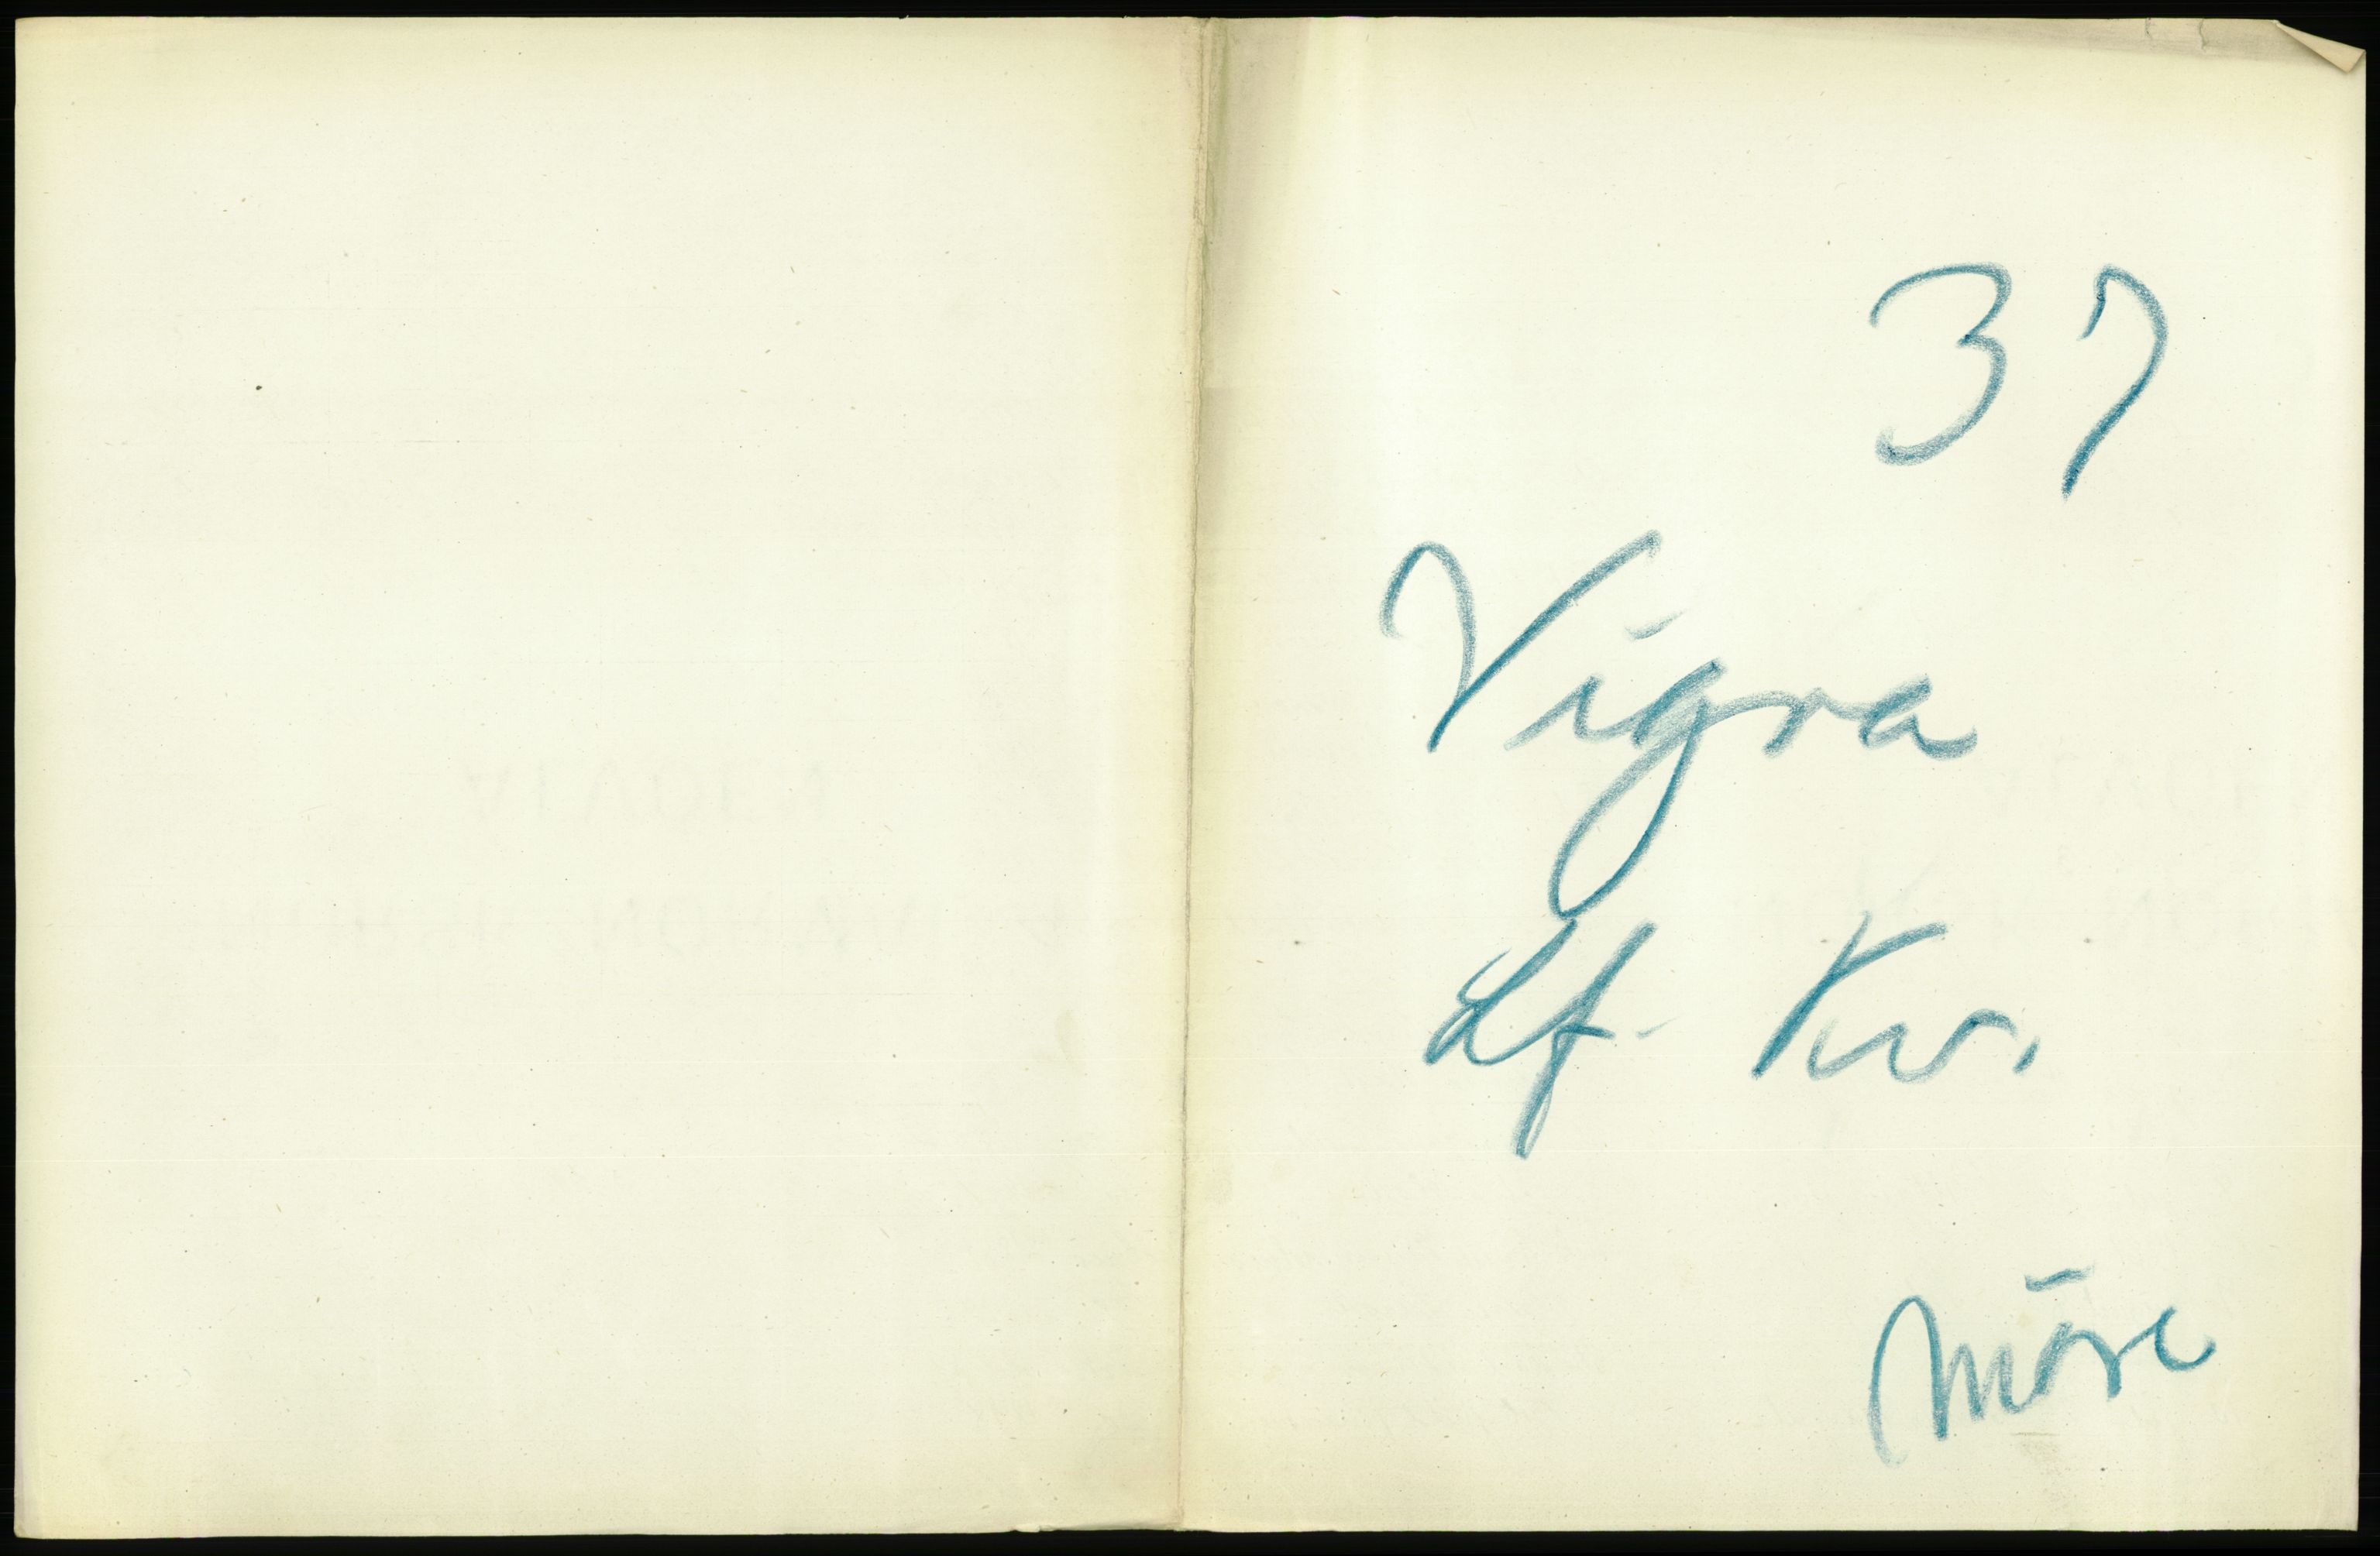 37
Vigra
Lf. Kv.
Möre